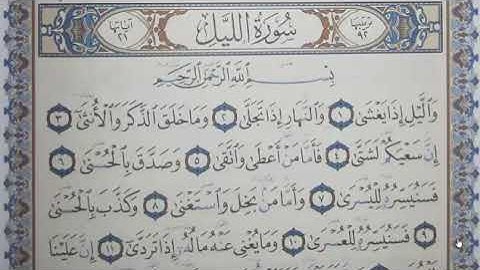 ترتيبها ٩٢ سُورَةُ اللَّيْلِ آياتها ٢١
بِسْمِ ٱللَّهِ ٱلرَّحْمَٰنِ ٱلرَّحِيمِ
وَٱلَّيْلِ إِذَا يَغْشَىٰ ١ وَٱلنَّهَارِ إِذَا تَجَلَّىٰ ٢ وَمَا خَلَقَ ٱلذَّكَرَ وَٱلْأُنثَىٰٓ ٣
إِنَّ سَعْيَكُمْ لَشَتَّىٰ ٤ فَأَمَّا مَنْ أَعْطَىٰ وَٱتَّقَىٰ ٥ وَصَدَّقَ بِٱلْحُسْنَىٰ ٦
فَسَنُيَسِّرُهُۥ لِلْيُسْرَىٰ ٧ وَأَمَّا مَنۢ بَخِلَ وَٱسْتَغْنَىٰ ٨ وَكَذَّبَ بِٱلْحُسْنَىٰ
٩ فَسَنُيَسِّرُهُۥ لِلْعُسْرَىٰ ١٠ وَمَا يُغْنِى عَنْهُ مَالُهُۥٓ إِذَا تَرَدَّىٰٓ ١١ إِنَّ عَلَيْنَا